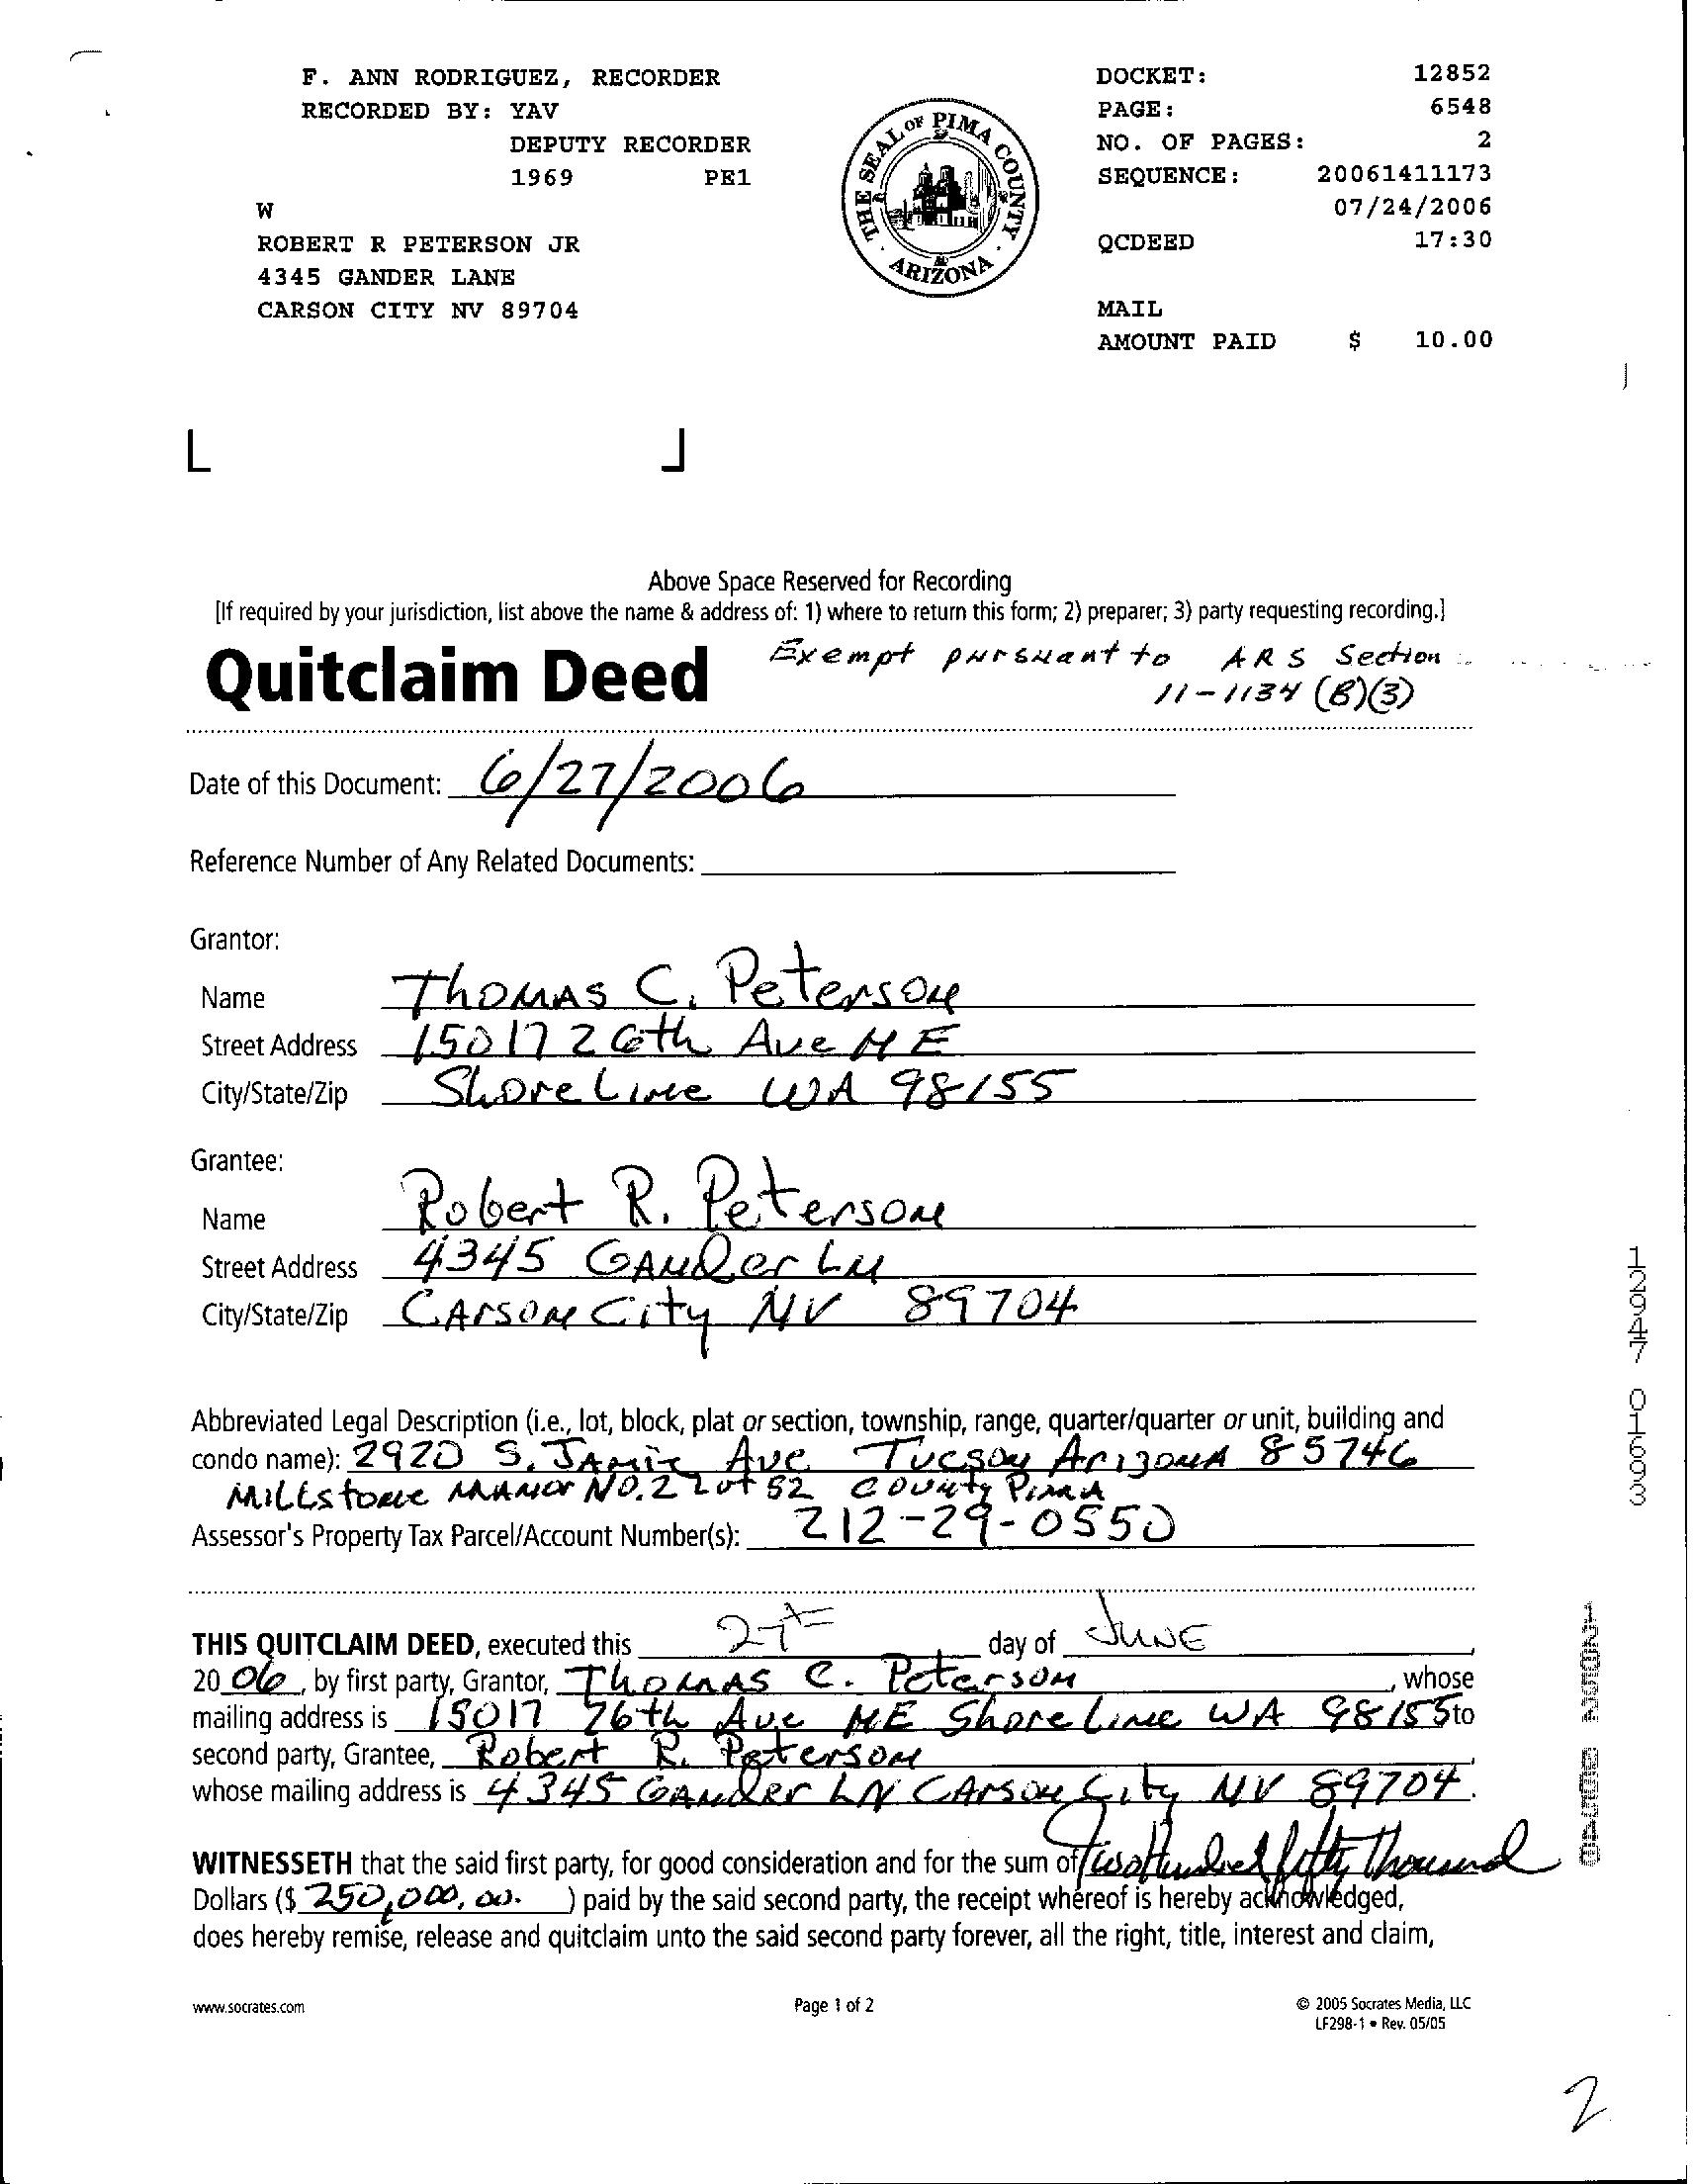 F. ANN RODRIGUEZ, RECORDER
RECORDED BY: YAV
DEPUTY RECORDER
1969 PE1
W
ROBERT R PETERSON JR
4345 GANDER LANE
CARSON CITY NV 89704
THE SEAL OF PIMA COUNTY
ARIZONA
DOCKET: 12852
PAGE: 6548
NO. OF PAGES: 2
SEQUENCE: 20061411173
07/24/2006
QCDEED 17:30
MAIL
AMOUNT PAID $ 10.00
Above Space Reserved for Recording
[If required by your jurisdiction, list above the name & address of: 1) where to return this form; 2) preparer; 3) party requesting recording.]
Quitclaim Deed
Exempt pursuant to ARS Section
11-1134 (B)(3)
Date of this Document: 6/27/2006
Reference Number of Any Related Documents:
Grantor:
Name Thomas C. Peterson
Street Address 15017 26th Ave NE
City/State/Zip Shoreline WA 98155
Grantee:
Name Robert R. Peterson
Street Address 4345 Gander Ln
City/State/Zip Carson City NV 89704
Abbreviated Legal Description (i.e., lot, block, plat or section, township, range, quarter/quarter or unit, building and
condo name): 2920 S. Ave Tucson Arizona 85746
Millstone Manor No. 2 Lot 52 County Pima
Assessor's Property Tax Parcel/Account Number(s): 212-29-0550
THIS QUITCLAIM DEED, executed this 27th day of JUNE,
2006, by first party, Grantor, Thomas C. Peterson, whose
mailing address is 15017 26th Ave NE Shoreline WA 98155 to
second party, Grantee, Robert R. Peterson,
whose mailing address is 4345 Gander LN Carson City NV 89704.
WITNESSETH that the said first party, for good consideration and for the sum of Two Hundred fifty Thousand
Dollars ($ 250,000.00. ) paid by the said second party, the receipt whereof is hereby acknowledged,
does hereby remise, release and quitclaim unto the said second party forever, all the right, title, interest and claim,
www.socrates.com
Page 1 of 2
© 2005 Socrates Media, LLC
LF298-1 • Rev. 05/05
2